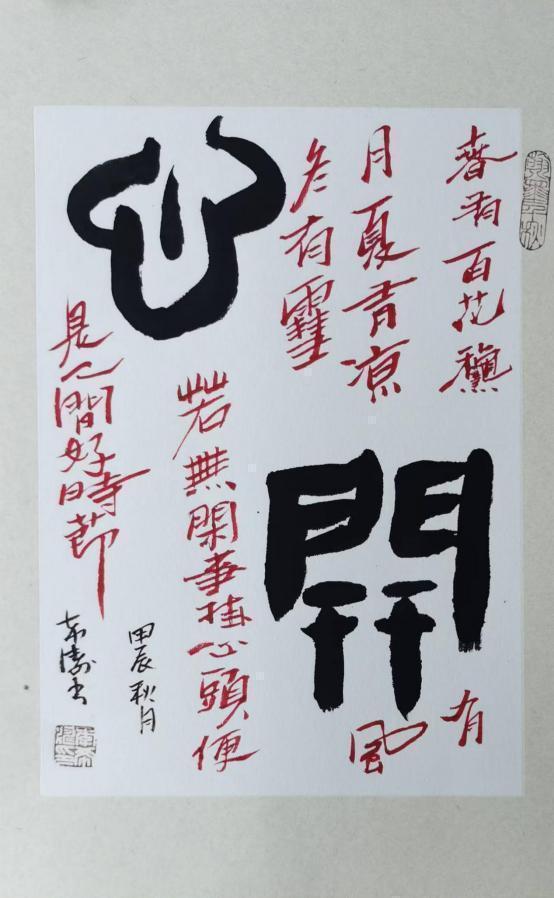 開
心
春有百花龝有
月夏有凉風
冬有雪
若無閑事挂心頭便
是人間好時節
甲辰秋月